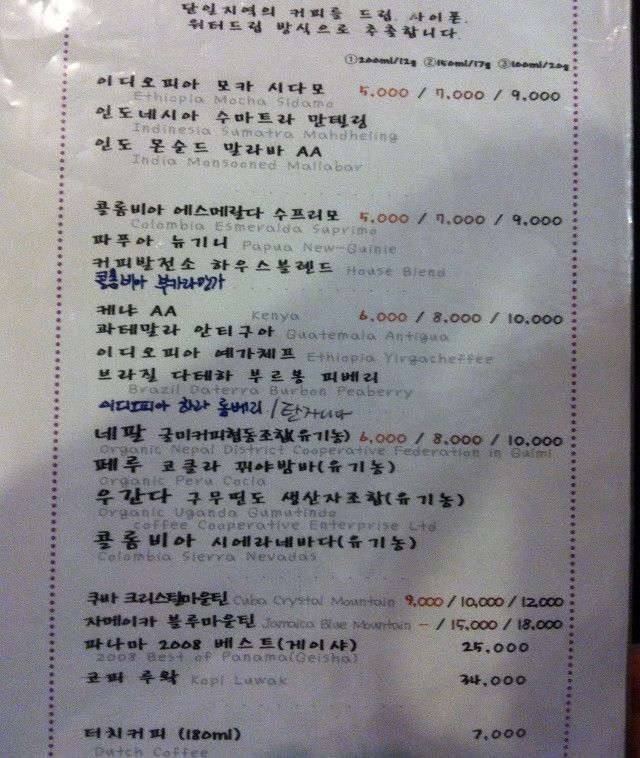 단일지역의 커피를 드립, 사이폰,
워터드립 방식으로 추출합니다.
①200ml/12g ②150ml/17g ③100ml/20g
이디오피아 모카 시다모 5,000 / 7,000 / 9,000
Ethiopia Mocha Sidamo
인도네시아 수마트라 만델링
Indinesia Sumatra Mahdheling
인도 몬순드 말라바 AA
India Monsooned Mallabar
콜롬비아 에스메랄다 수프리모 5,000 / 7,000 / 9,000
Colombia Esmeralda Suprimo
파푸아 뉴기니 Papua New-Guinie
커피발전소 하우스블렌드 House Blend
콜롬비아 부카라망가
케냐 AA Kenya 6,000 / 8,000 / 10,000
과테말라 안티구아 Guatemala Antigua
이디오피아 예가체프 Ethiopia Yirgacheffee
브라질 다테하 부르봉 피베리
Brazil Daterra Burbon Peaberry
이디오피아 하라 롱베리 / 탄자니아
네팔 굴미커피협동조합(유기농) 6,000 / 8,000 / 10,000
Organic Nepal District Cooperative Federation in Gulmi
페루 코클라 뀌야밤바(유기농)
Organic Peru Cocla
우간다 구무띤도 생산자조합(유기농)
Organic Uganda Gumutindo
coffee Cooperative Enterprise Ltd
콜롬비아 시에라네바다(유기농)
Colombia Sierra Nevadas
쿠바 크리스탈마운틴 Cuba Crystal Mountain 9,000 / 10,000 / 12,000
자메이카 블루마운틴 Jamaica Blue Mountain - / 15,000 / 18,000
파나마 2008 베스트(게이샤) 25,000
2008 Best of Panama(Geisha)
코피 루왁 Kopi Luwak 34,000
더치커피 (180ml) 7,000
Dutch Coffee